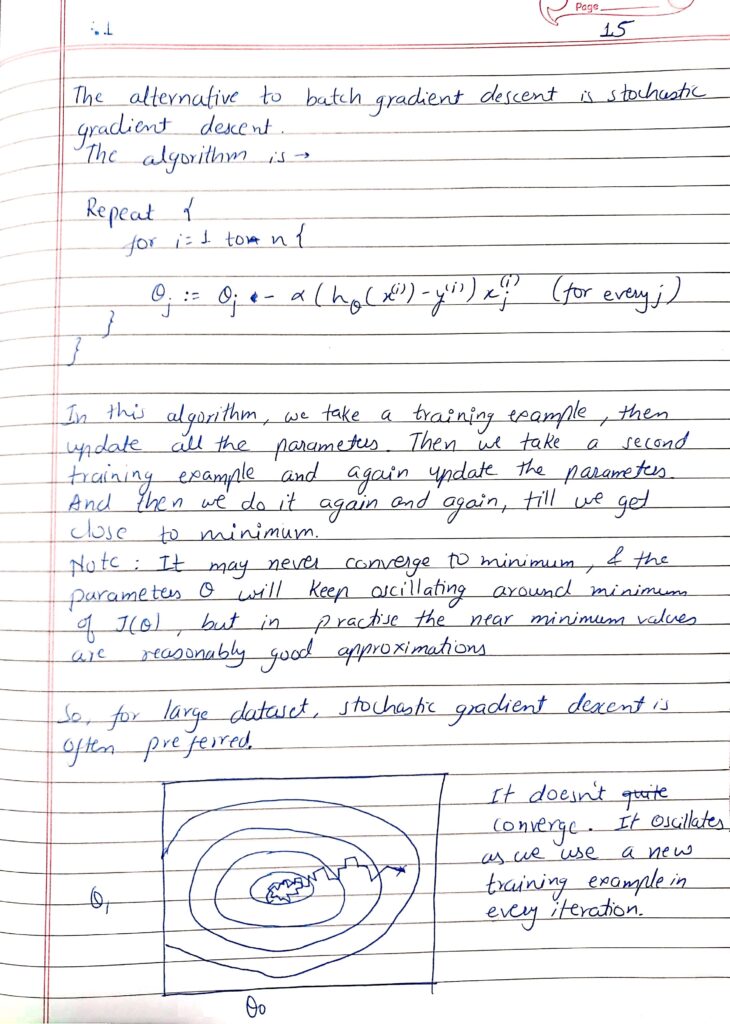 Page
∴ 1
15
The alternative to batch gradient descent is stochastic
gradient descent.
The algorithm is →
Repeat {
for i = 1 to n {
θj := θj - α (hθ(x⁽ⁱ⁾) - y⁽ⁱ⁾) xj⁽ⁱ⁾ (for every j)
}
}
In this algorithm, we take a training example, then
update all the parameters. Then we take a second
training example and again update the parameters.
And then we do it again and again, till we get
close to minimum.
Note : It may never converge to minimum, & the
parameters θ will keep oscillating around minimum
of J(θ), but in practise the near minimum values
are reasonably good approximations
So, for large dataset, stochastic gradient descent is
often preferred.
It doesn't quite
converge. It oscillates
as we use a new
training example in
every iteration.
θ₁
θ₀